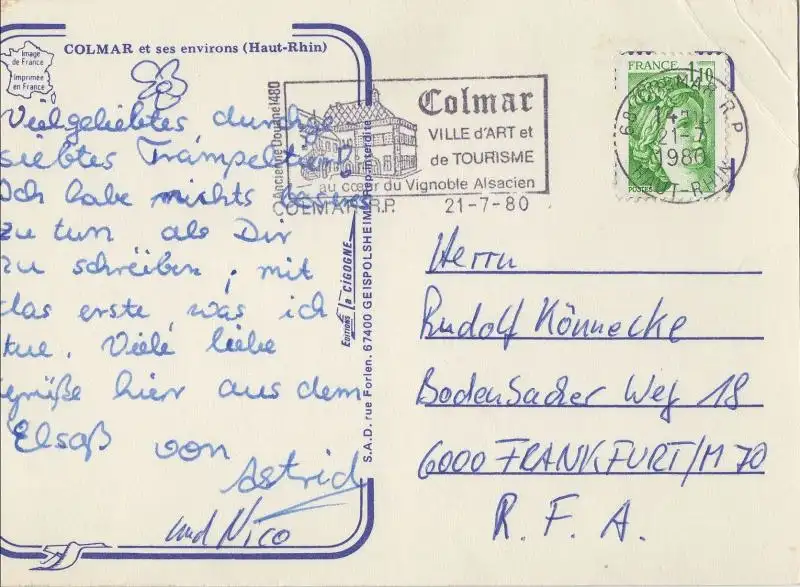 Image
de France
Imprimée
en France
COLMAR et ses environs (Haut-Rhin)
Vielgeliebtes,
Ich habe nichts
zu tun als Dir
zu schreiben, mit
das erste, was ich
tue. Viele liebe
grüße hier aus dem
Elsaß von
Astrid
und Nico
Ancienne Douane 1480
Colmar
VILLE d'ART et
de TOURISME
au cœur du Vignoble Alsacien
COLMAR R.P. 21-7-80
Editions la CIGOGNE
S.A.D. rue Forlen. 67400 GEISPOLSHEIM Rep. interdite
FRANCE 1,10
POSTES
68 COLMAR R.P.
21-7
1980
HAUT-RHIN
Herrn
Rudolf Könnecke
Weg 18
6000 FRANKFURT/M 70
R. F. A.